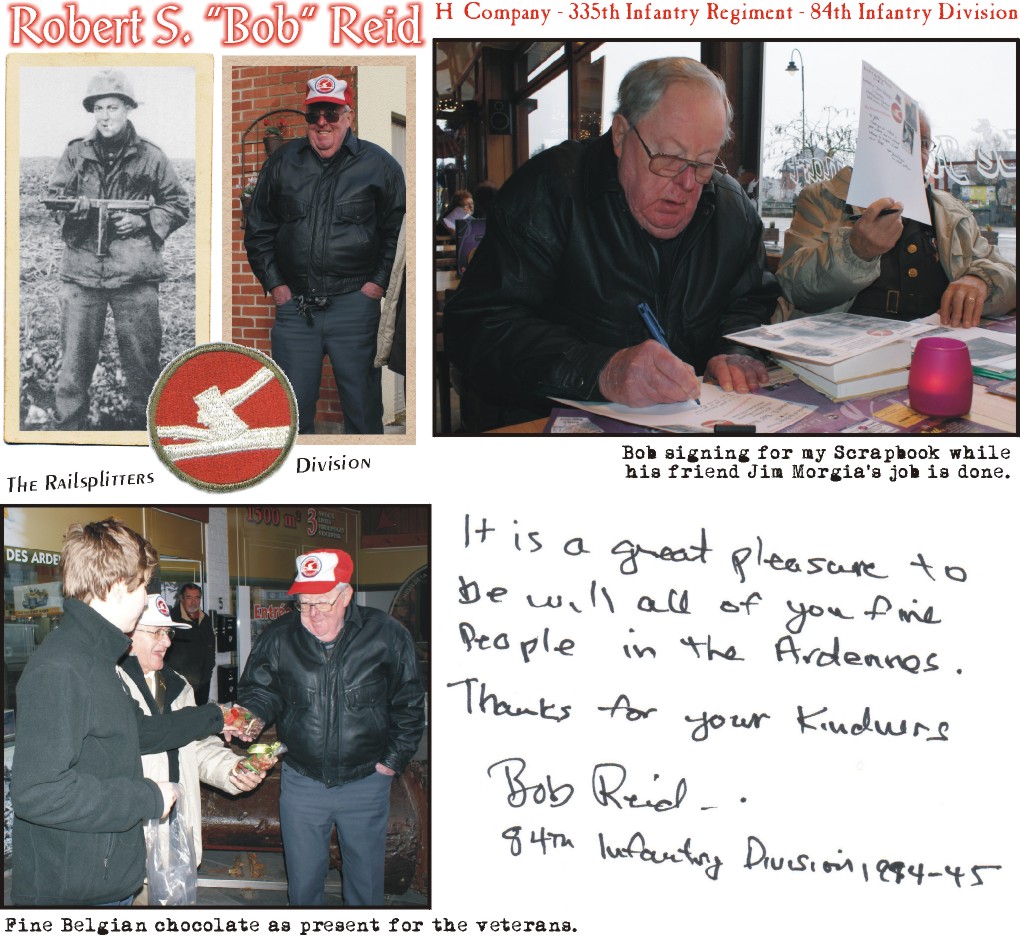 Robert S. "Bob" Reid
H Company - 335th Infantry Regiment - 84th Infantry Division
The Railsplitters
Division
Bob signing for my Scrapbook while
his friend Jim Morgia's job is done.
DES ARDE
1500 m²
3
Entré
It is a great pleasure to
be will all of you fine
People in the Ardennes.
Thanks for your Kindness
Bob Reid - .
84th Infantry Division, 1944-45
Fine Belgian chocolate as present for the veterans.